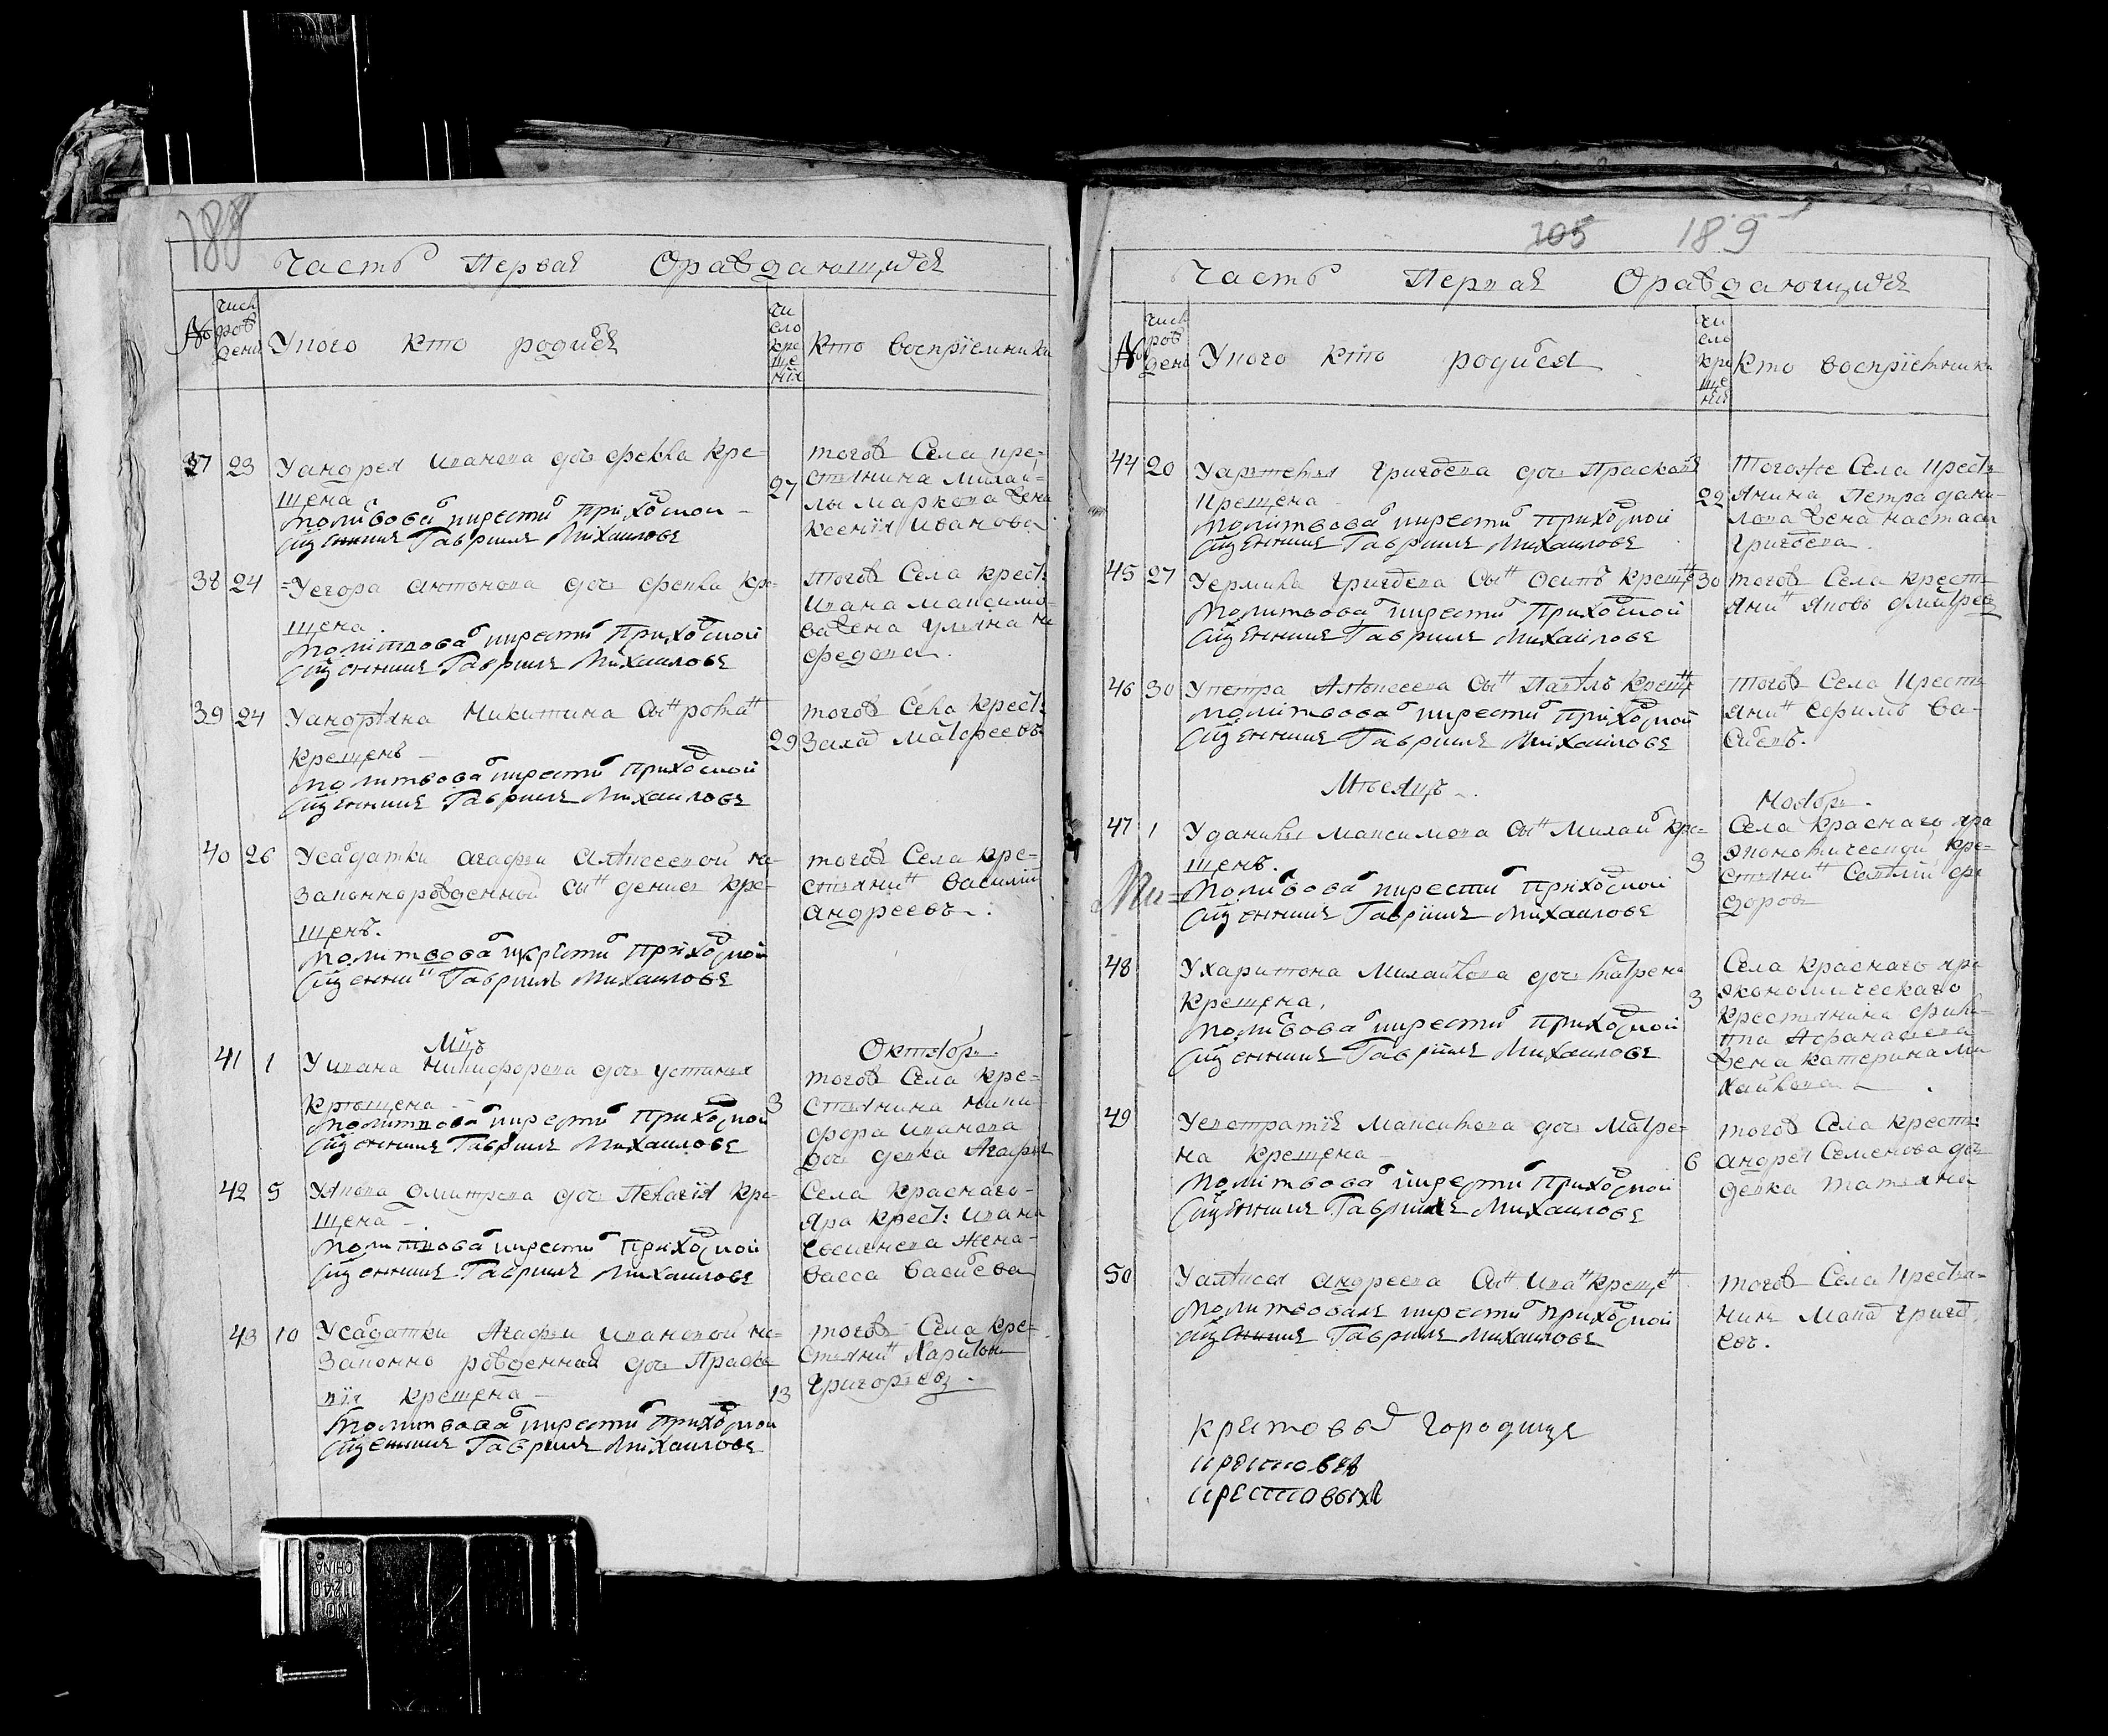 188
Часть Первая Ораждающихся
№
числ рож дени
У кого кто родися
чи сло кре ще нія
Кто воспріемники
37 23 У андрея иванова дочь фекла кре
щена
молитвовал и крестил приходской
священникъ Гаврилъ Михаиловъ
27
тогож Села кре=
стьянина михай=
лы маркова жена
ксенія Иванова
38 24 У егора антонова дочь фекла кре
щена
молитвовал и крестил Приходской
священникъ Гаврилъ Михаиловъ
тогож Села крест:
ивана максимо
ва жена ульяна не
федова.
39 24 У андрѣяна Никитина сынъ роман
крещенъ
молитвовал и крестил приходской
священникъ Гаврилъ Михаиловъ
29
тогож Села крест:
Захар матфеевъ
40 26 У салдатки агафьи алѣксеевой не
законнорожденной сынъ денисъ кре=
щенъ.
молитвовал и крѣстил приходской
священникъ Гаврилъ Михаиловъ
тогож Села кре=
стьянинъ василій
андреевъ.
Мцъ
Октябрь
41 1 У ивана Никифорова дочь устинья
крещена
молитвовал и крестил приходской
священникъ Гаврилъ Михаиловъ
3
тогож Села кре=
стьянина ники=
фора иванова
дочь девка Агафья
42 5 У якова дмитрева дочь Пелагія кре
щена
молитвовал и крестил приходской
священникъ Гаврилъ Михаиловъ
Села красного=
яра крест: ивана
жена=
васса васильева
43 10 У салдатки Агафьи ивановой не=
законно рожденная дочь Праско
вія крещена
Молитвовал и крестил приходской
священникъ Гаврилъ Михаиловъ
13
тогож Села кре=
стьянинъ Харитонъ
григорьевъ
105 189
Часть Первая Ораждающихся
№
числ рож дени
У кого кто родился
чи сло кре ще нія
Кто воспріемники
44 20 У артемья григорева дочь Прасковья
крещена
молитвовал и крестил приходской
священникъ Гаврилъ Михаиловъ
22
Тогоже Села крестья
янина Петра дани=
лова жена настасья
григорева.
45 27 У ермила григорева сынъ осипъ крещен
молитвовал и крестил Приходской
священникъ Гаврилъ Михаиловъ
30
тогож Села крестья
янинъ яковъ дмитревъ
46 30 У петра Алѣксеева сынъ Павелъ крещен
молитвовал и крестил приходской
священникъ Гаврилъ Михаиловъ
тогож Села крестья
янинъ ва=
сильевъ.
Мѣсяцъ
Ноябрь
47 1 У данилы максимова сынъ Михайл кре=
щенъ.
Молитвовал и крестил приходской
священникъ Гаврилъ Михаиловъ
3
Села красного яра
экономической кре=
стьянинъ фе
доровъ
48 У харитона Михайлова дочь матрена
крещена.
молитвовал и крестил приходской
священникъ Гаврилъ Михаиловъ
3
Села красного яра
экономического
крестьянина фили=
ппа Афанасьева
жена катерина ми
хайлова
49 У евстратія Максимова дочь Матре=
на крещена
молитвовал и крестил приходской
священникъ Гаврилъ Михаиловъ
6
тогож Села крестья:
андрея Семенова дочь
девка татьяна
50 У алѣксея андреева сынъ иванъ крещен
молитвовалъ и крестил приходской
священникъ Гаврилъ Михаиловъ
тогож Села крестья=
нинъ григор
евъ.
крѣстовый городище
крестовы
крестовыхъ